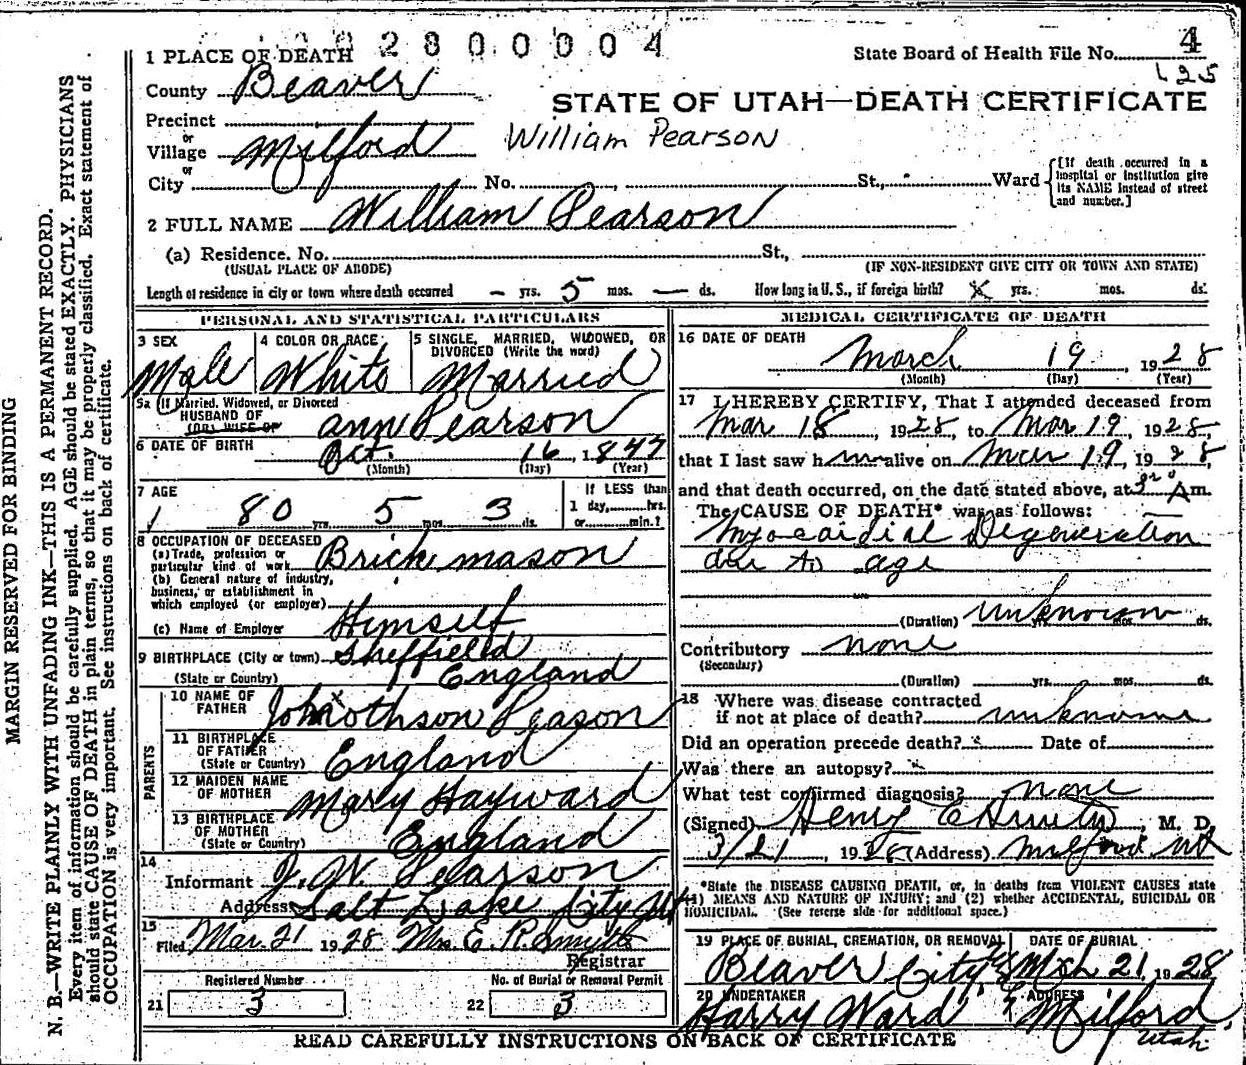 2 8 0 0 0 0 4
1 PLACE OF DEATH
State Board of Health File No. 4
125
County Beaver
STATE OF UTAH—DEATH CERTIFICATE
Precinct
or
Village Milford
William Pearson
or
City No. St., Ward
[If death occurred in a hospital or institution give its NAME instead of street and number.]
2 FULL NAME William Pearson
(a) Residence. No. St.,
(USUAL PLACE OF ABODE) (IF NON-RESIDENT GIVE CITY OR TOWN AND STATE)
Length of residence in city or town where death occurred — yrs. 5 mos. — ds. How long in U.S., if foreign birth? X yrs. mos. ds.
PERSONAL AND STATISTICAL PARTICULARS
3 SEX
Male
4 COLOR OR RACE
White
5 SINGLE, MARRIED, WIDOWED, OR DIVORCED (Write the word)
Married
5a If Married, Widowed, or Divorced
HUSBAND OF
(OR) WIFE OF
Ann Pearson
6 DATE OF BIRTH Oct. 16, 1847
(Month) (Day) (Year)
7 AGE
80 yrs. 5 mos. 3 ds.
If LESS than
1 day, hrs.
or min.?
8 OCCUPATION OF DECEASED
(a) Trade, profession or
particular kind of work Brick mason
(b) General nature of industry,
business, or establishment in
which employed (or employer)
(c) Name of Employer Himself
9 BIRTHPLACE (City or town) Sheffield
(State or Country) England
PARENTS
10 NAME OF
FATHER Johnothson Peason
11 BIRTHPLACE
OF FATHER
(State or Country) England
12 MAIDEN NAME
OF MOTHER Mary Hayward
13 BIRTHPLACE
OF MOTHER
(State or Country) England
14
Informant J. W. Pearson
Address Salt Lake City Ut
15
Filed Mar. 21 1928 Mrs. E. R. Smyth
Registrar
Registered Number
21 3
No. of Burial or Removal Permit
22 3
MEDICAL CERTIFICATE OF DEATH
16 DATE OF DEATH
March 19, 1928
(Month) (Day) (Year)
17 I HEREBY CERTIFY, That I attended deceased from
Mar 18, 1928, to Mar 19, 1928,
that I last saw him alive on Mar 19, 1928,
and that death occurred, on the date stated above, at 3 20 A m.
The CAUSE OF DEATH* was as follows:
Myocardial Degeneration
due to age
(Duration) Unknown mos. ds.
Contributory none
(Secondary)
(Duration) yrs. mos. ds.
18 Where was disease contracted
if not at place of death? unknown
Did an operation precede death? Date of
Was there an autopsy?
What test confirmed diagnosis? none
(Signed) Henry E, M. D.
3/21, 1928 (Address) Milford Ut
*State the DISEASE CAUSING DEATH, or, in deaths from VIOLENT CAUSES state
(1) MEANS AND NATURE OF INJURY; and (2) whether ACCIDENTAL, SUICIDAL OR
HOMICIDAL. (See reverse side for additional space.)
19 PLACE OF BURIAL, CREMATION, OR REMOVAL
Beaver City
DATE OF BURIAL
Mch 21, 1928
20 UNDERTAKER
Harry Ward
ADDRESS
Milford,
Utah
READ CAREFULLY INSTRUCTIONS ON BACK OF CERTIFICATE
MARGIN RESERVED FOR BINDING
N. B.—WRITE PLAINLY WITH UNFADING INK—THIS IS A PERMANENT RECORD.
Every item of information should be carefully supplied. AGE should be stated EXACTLY. PHYSICIANS
should state CAUSE OF DEATH in plain terms, so that it may be properly classified. Exact statement of
OCCUPATION is very important. See instructions on back of certificate.